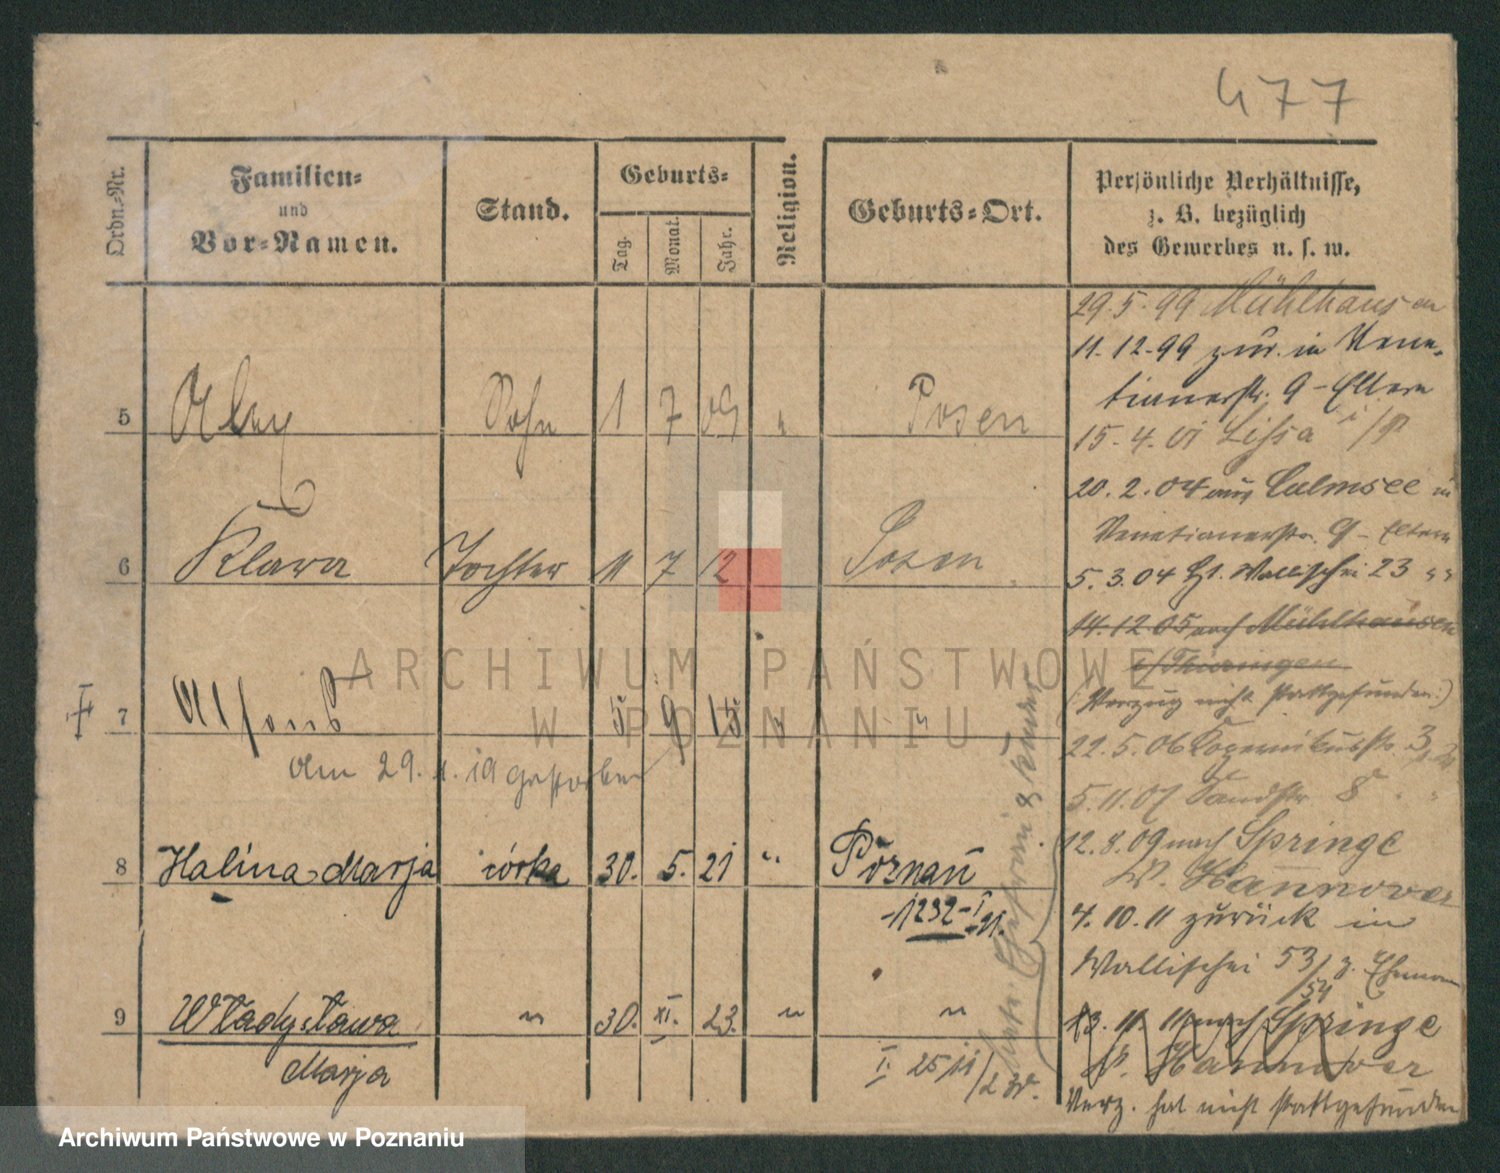 477
Ordn.-Nr.
Familien-
und
Vor-Namen.
Stand.
Geburts-
Tag.
Monat.
Jahr.
Religion.
Geburts-Ort.
Persönliche Verhältnisse,
z. B. bezüglich
des Gewerbes u. s. w.
5 Sohn 1 7 09 " Posen
6 Klara Tochter 11 7 12 Posen
7 Alfons 5 9 15 " "
Am 29. 1. 19 gestorben
8 Halina Marja córka 30. 5. 21 " Poznań
1232-I
21.
9 Władysława " 30. XI. 23. " "
Marja
I. 25/11
29.5.99 Mühlhausen
11.12.99 zur. in Vene-
tianerstr. 9 - Eltern
15.4.01 Lissa i/P
20.2.04 aus Culmsee in
Venetianerstr. 9 - Eltern
5.3.04 Wallischei 23 "
14.12.05 nach Mühlhausen
i/Thüringen
(Verzug nicht stattgefunden.)
22.5.06 Kopernikusstr. 3
5.11.07 Sandstr. 8
12.8.09 nach Springe
Pr. Hannover
4.10.11 zurück in
Wallischei 53/54 z. Ehemann
13.11.11 nach Springe
Pr. Hannover
Verz. hat nicht stattgefunden
ARCHIWUM PAŃSTWOWE
W POZNANIU
Archiwum Państwowe w Poznaniu